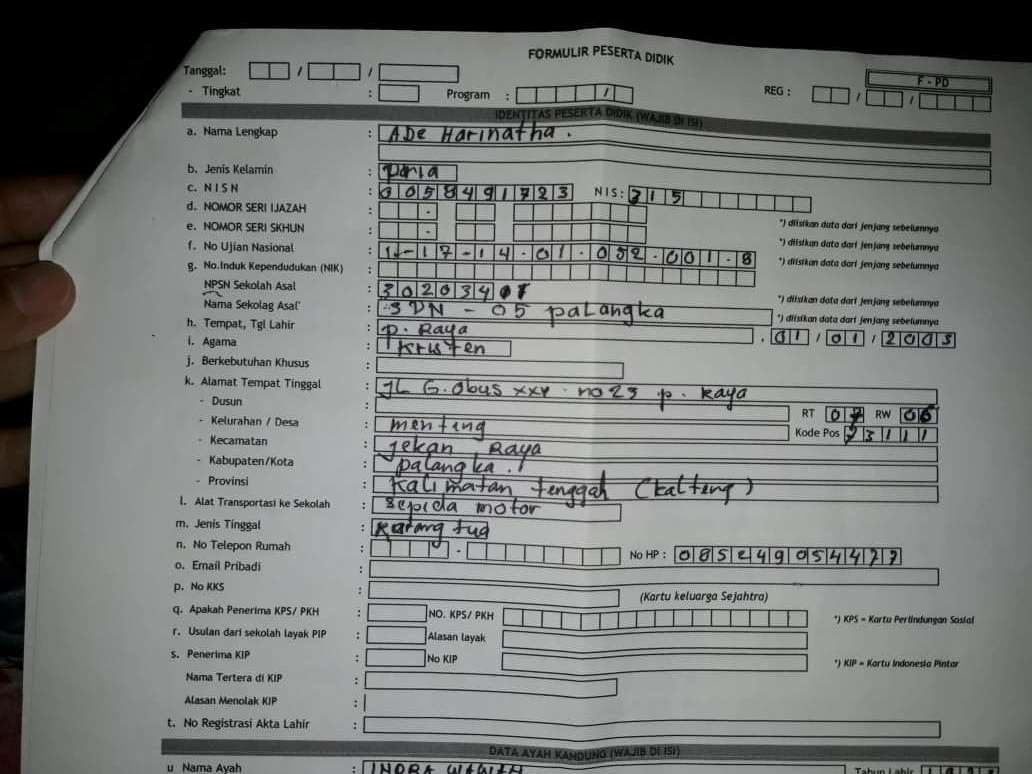 FORMULIR PESERTA DIDIK
Tanggal: / / F - PD
- Tingkat : Program : / REG : / /
IDENTITAS PESERTA DIDIK (WAJIB DI ISI)
a. Nama Lengkap : ADe Harinatha .
b. Jenis Kelamin : pria
c. N I S N : 0058491723 NIS: 315
d. NOMOR SERI IJAZAH : - *) diisikan data dari jenjang sebelumnya
e. NOMOR SERI SKHUN : - *) diisikan data dari jenjang sebelumnya
f. No Ujian Nasional : 1-17-14-01-052-001-8 *) diisikan data dari jenjang sebelumnya
g. No.Induk Kependudukan (NIK) :
NPSN Sekolah Asal : 302034 *) diisikan data dari jenjang sebelumnya
Nama Sekolag Asal' : SDN - 05 palangka *) diisikan data dari jenjang sebelumnya
h. Tempat, Tgl Lahir : p. Raya , 01 / 01 / 2003
i. Agama : Kristen
j. Berkebutuhan Khusus :
k. Alamat Tempat Tinggal : JL G. obus xxv no 23 p. Raya
- Dusun : RT 07 RW 06
- Kelurahan / Desa : menteng Kode Pos 73111
- Kecamatan : jekan Raya
- Kabupaten/Kota : palangka .
- Provinsi : Kalimatan tenggah (kalteng)
l. Alat Transportasi ke Sekolah : sepida motor
m. Jenis Tinggal : tua
n. No Telepon Rumah : - No HP : 085249054477
o. Email Pribadi :
p. No KKS : (Kartu keluarga Sejahtra)
q. Apakah Penerima KPS/ PKH : NO. KPS/ PKH *) KPS = Kartu Perlindungan Sosial
r. Usulan dari sekolah layak PIP : Alasan layak
s. Penerima KIP : No KIP *) KIP = Kartu Indonesia Pintar
Nama Tertera di KIP :
Alasan Menolak KIP :
t. No Registrasi Akta Lahir :
DATA AYAH KANDUNG (WAJIB DI ISI)
u Nama Ayah : INDRA Tahun Lahir